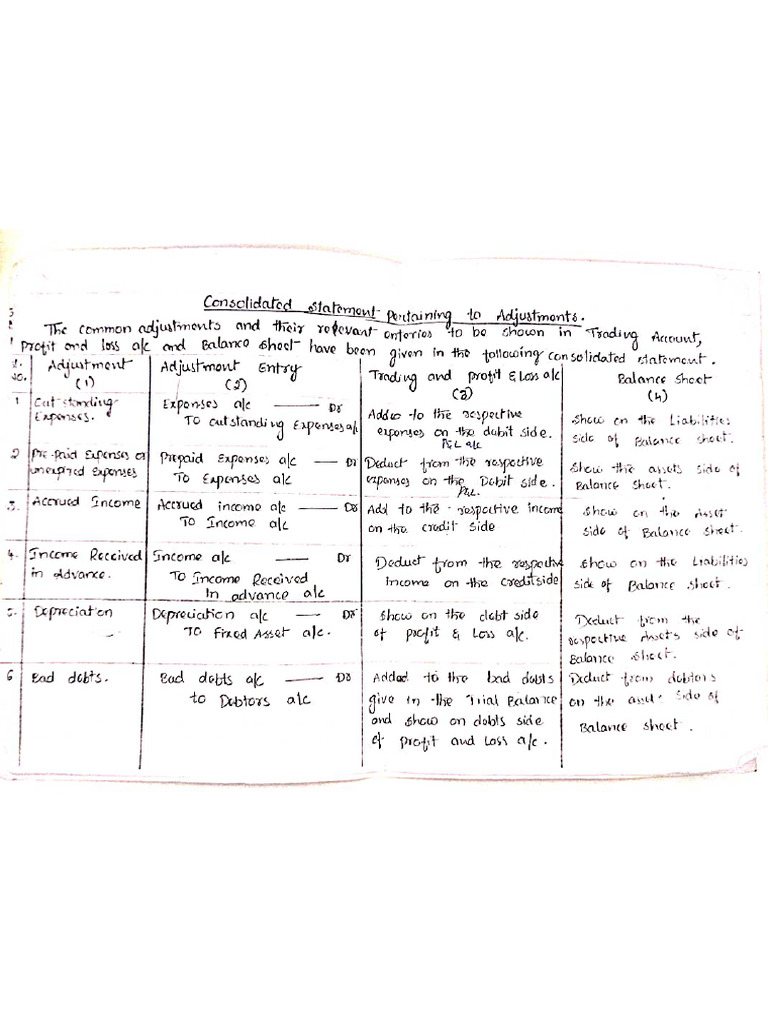 Consolidated statement pertaining to Adjustments.
The common adjustments and their relevant enteries to be shown in Trading Account,
profit and loss a/c and Balance sheet have been given in the following consolidated statement.
S. NO.
Adjustment
(1)
Adjustment Entry
(2)
Trading and profit & Loss a/c
(3)
Balance sheet
(4)
1
Outstanding
Expenses.
Expenses a/c —— Dr
TO Outstanding Expenses a/c
Added to the respective
expenses on the debit side.
P&L a/c
show on the Liabilities
side of Balance sheet.
2
Pre-paid Expenses or
unexpired Expenses
Prepaid Expenses a/c —— Dr
TO Expenses a/c
Deduct from the respective
expenses on the Debit side.
P&L.
show the assets side of
Balance sheet.
3.
Accrued Income
Accrued income a/c —— Dr
TO Income a/c
Add to the respective income
on the credit side
show on the Asset
side of Balance sheet.
4.
Income Received
in advance.
Income a/c —— Dr
TO Income Received
In advance a/c
Deduct from the respective
income on the credit side
show on the Liabilities
side of Balance sheet.
5.
Depreciation
Depreciation a/c —— Dr
TO Fixed Asset a/c.
show on the debt side
of profit & Loss a/c.
Deduct from the
respective Assets side of
Balance sheet.
6
Bad debts.
Bad debts a/c —— Dr
to Debtors a/c
Added to the bad debts
give in the Trial Balance
and show on debts side
of profit and Loss a/c.
Deduct from debtors
on the asset side of
Balance sheet.